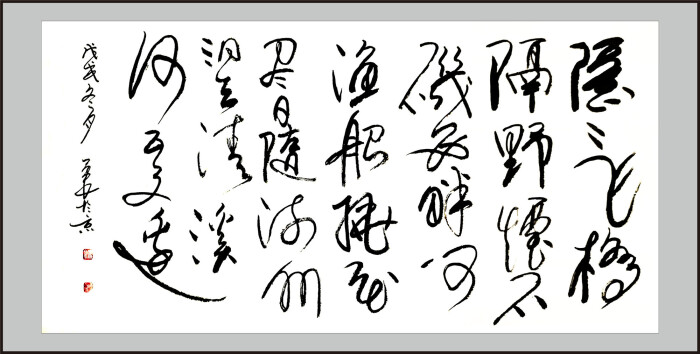 隐隐飞橋
隔野煙石
磯西畔问
渔船桃花
尽日随流水
洞在清溪
何處邊
戊戌冬月